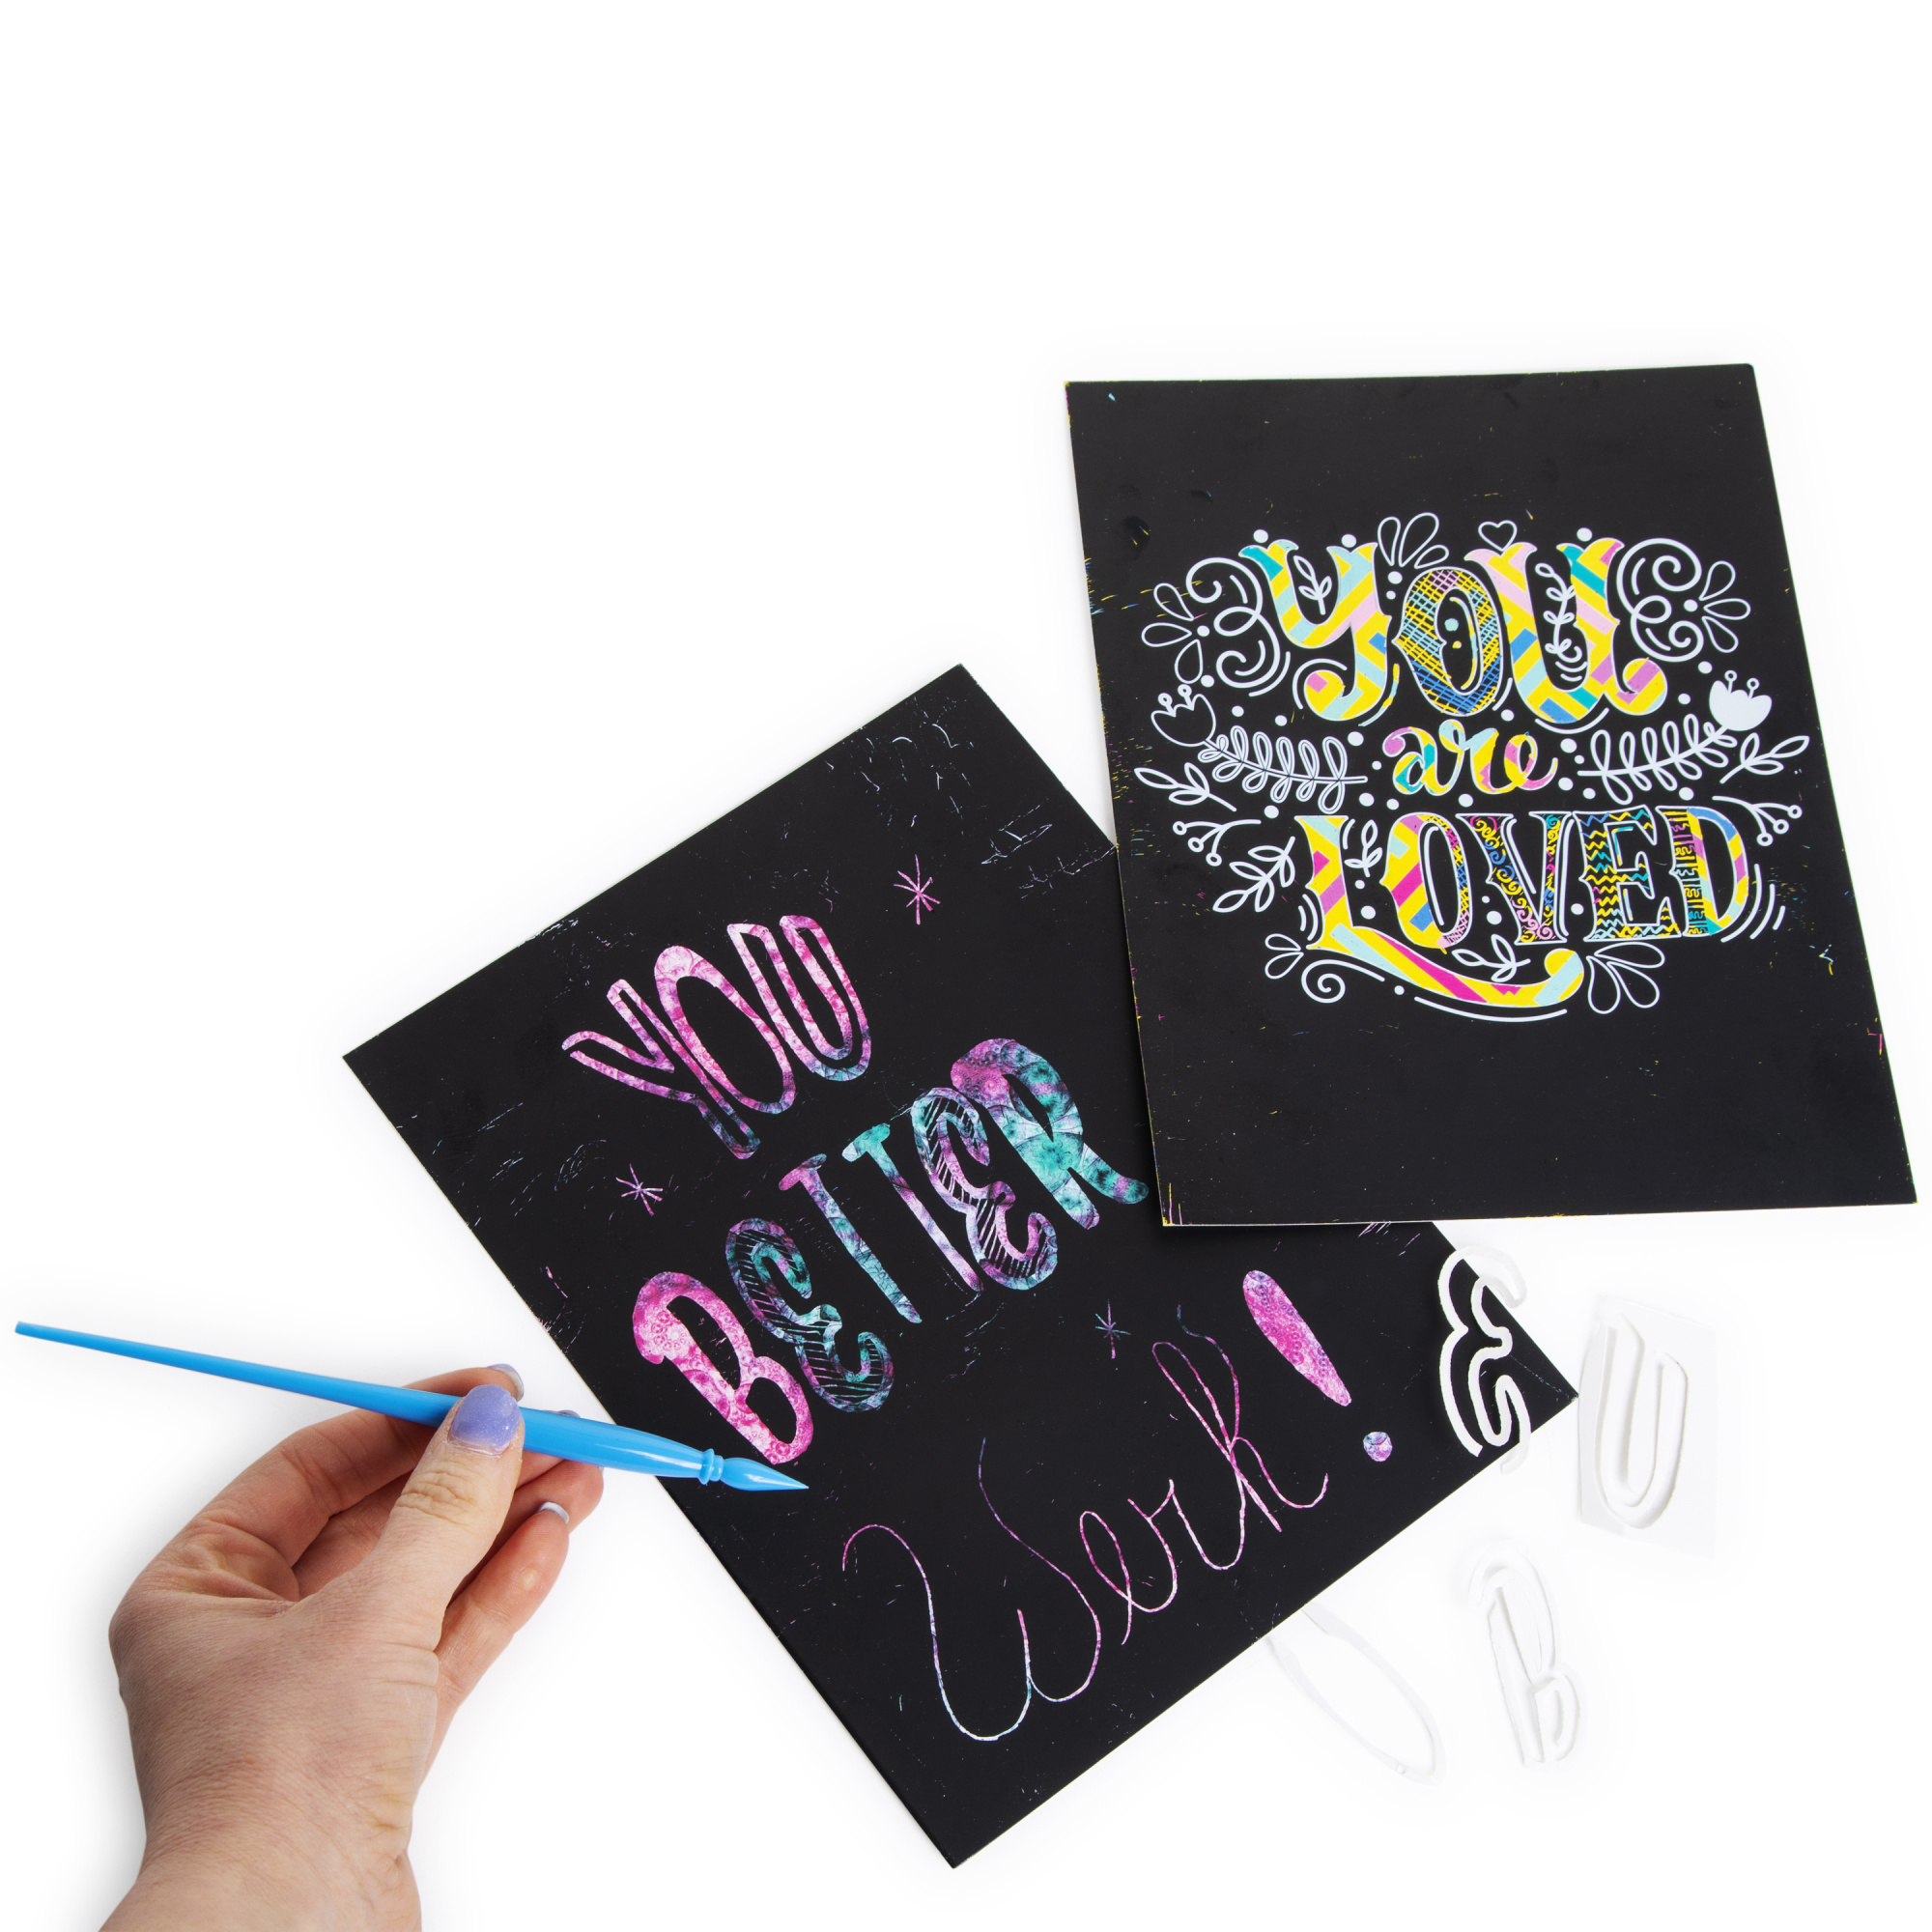 YOU
are
LOVED
YOU
BETTER
Werk!
E
U
B